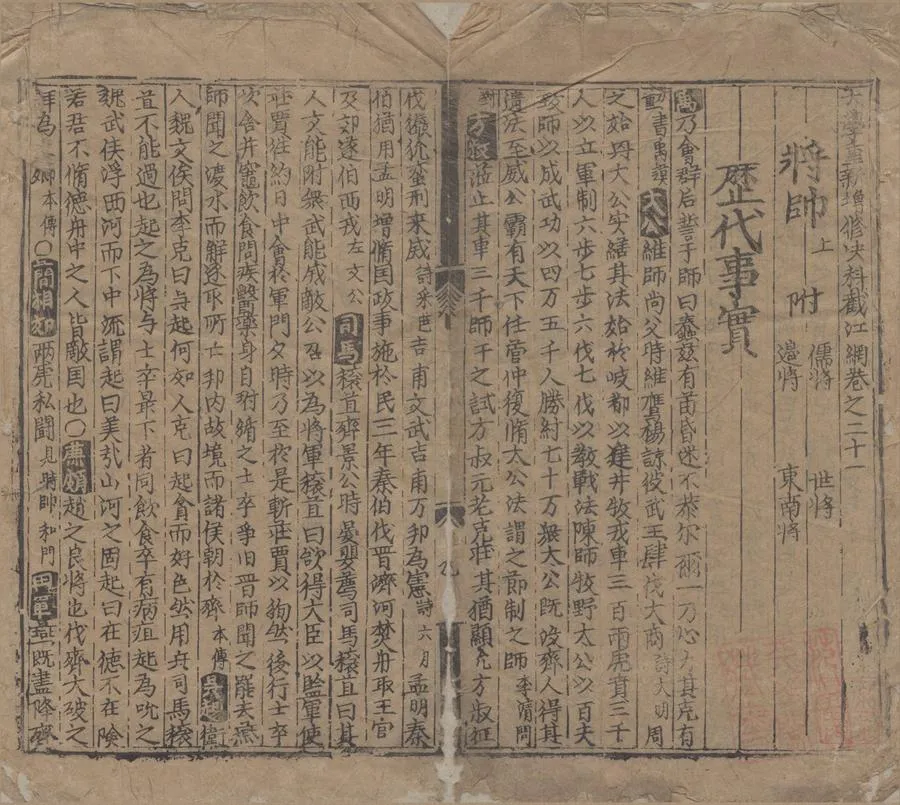 太學重新增修決科截江網卷之二十一
將帥 上 附 儒將 世將 邊將 東南將
歷代事實
禹乃會群后誓于師曰蠢茲有苗昏迷不恭尔一乃心力其克有
勳書禹謨 太公維師尚父時維鷹揚諒彼武王肆伐大商詩大明周
之始興大公實繕其法始於岐都以建井牧戎車三百兩虎賁三千
人以立軍制六步七步六伐七伐以教戰法陳師牧野太公以百夫
致師以成武功以四万五千人勝紂七十万衆大公既沒齊人得其
遺法至威公霸有天下任管仲復脩大公法謂之節制之師李靖問
對 方叔涖止其車三千師干之試方叔元老克壯其猶顯允方叔征
伐玁狁蛮荆來威詩采芑吉甫文武吉甫万邦為憲詩六月孟明秦
伯猶用孟明增脩囯政重施於民三年秦伯伐晉濟河焚舟取王官
及郊遂伯西戎左文公 司馬穰苴齊景公時晏嬰薦司馬穰苴曰其
人文能附衆武能威敵公召以為將軍穰苴曰欲得大臣以監軍使
莊賈往約日中會於軍門夕時乃至於是斬莊賈以狥然後行士卒
次舍井竈飲食問疾醫藥身自附循之士卒爭旧晉師聞之罷去燕
師聞之渡水而解遂取所亡邦內故境而諸侯朝於齊本傳 吳起衛
人魏文侯問李克曰吳起何如人克曰起貪而好色然用兵司馬穰
苴不能過也起之為將与士卒最下者同飲食卒有病疽起為吮之
魏武侯浮西河而下中流謂起曰美哉山河之固起曰在德不在險
若君不脩德舟中之人皆敵囯也〇廉頗趙之良將也伐齊大破之
拜為上卿本傳〇藺相如兩虎私鬭見將帥和門 田單燕既盡降齊